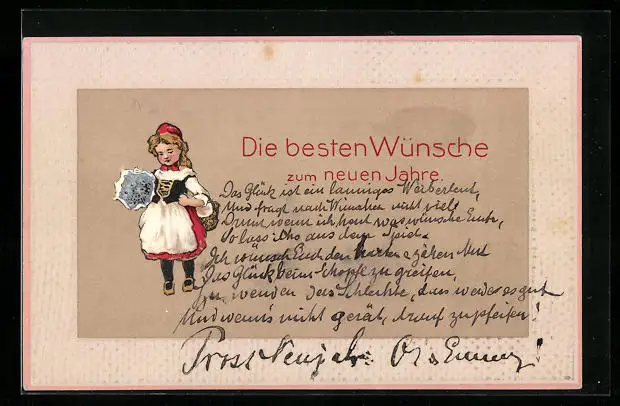 Die besten Wünsche
zum neuen Jahre.
Das Glück ist ein launiges
Und fragt nach Wünschen nicht viel
Drum wenn ich heut was wünsche Euch,
So lass ich's aus dem Spiel.
Ich wünsch Euch den zähen Mut
Das Glück beim Schopf zu greifen,
Zu wenden das Schlechte, dass werde es gut
Und wenn's nicht gerät, drauf zu pfeifen!
Prost Neujahr!